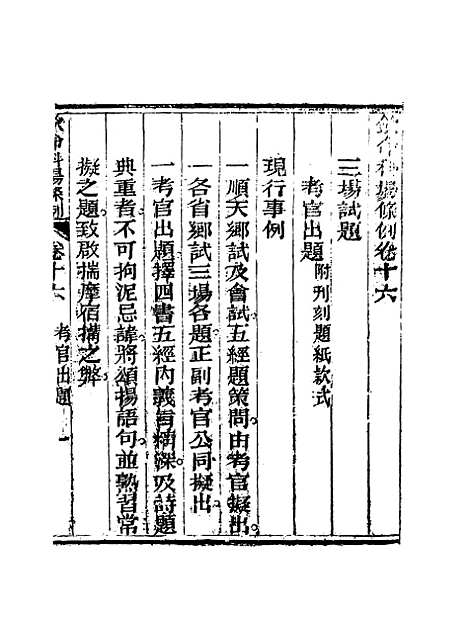 欽命科場條例卷十六
三場試題
考官出題附刊刻題紙款式
現行事例
一順天鄉試及會試五經題策問由考官擬出。
一各省鄉試三場各題正副考官公同擬出。
一考官出題擇四書五經內義旨精深及詩題
典重者不可拘泥忌諱將頌揚語句並熟習常
擬之題致啟揣摩宿搆之弊
卷十六 考官出題